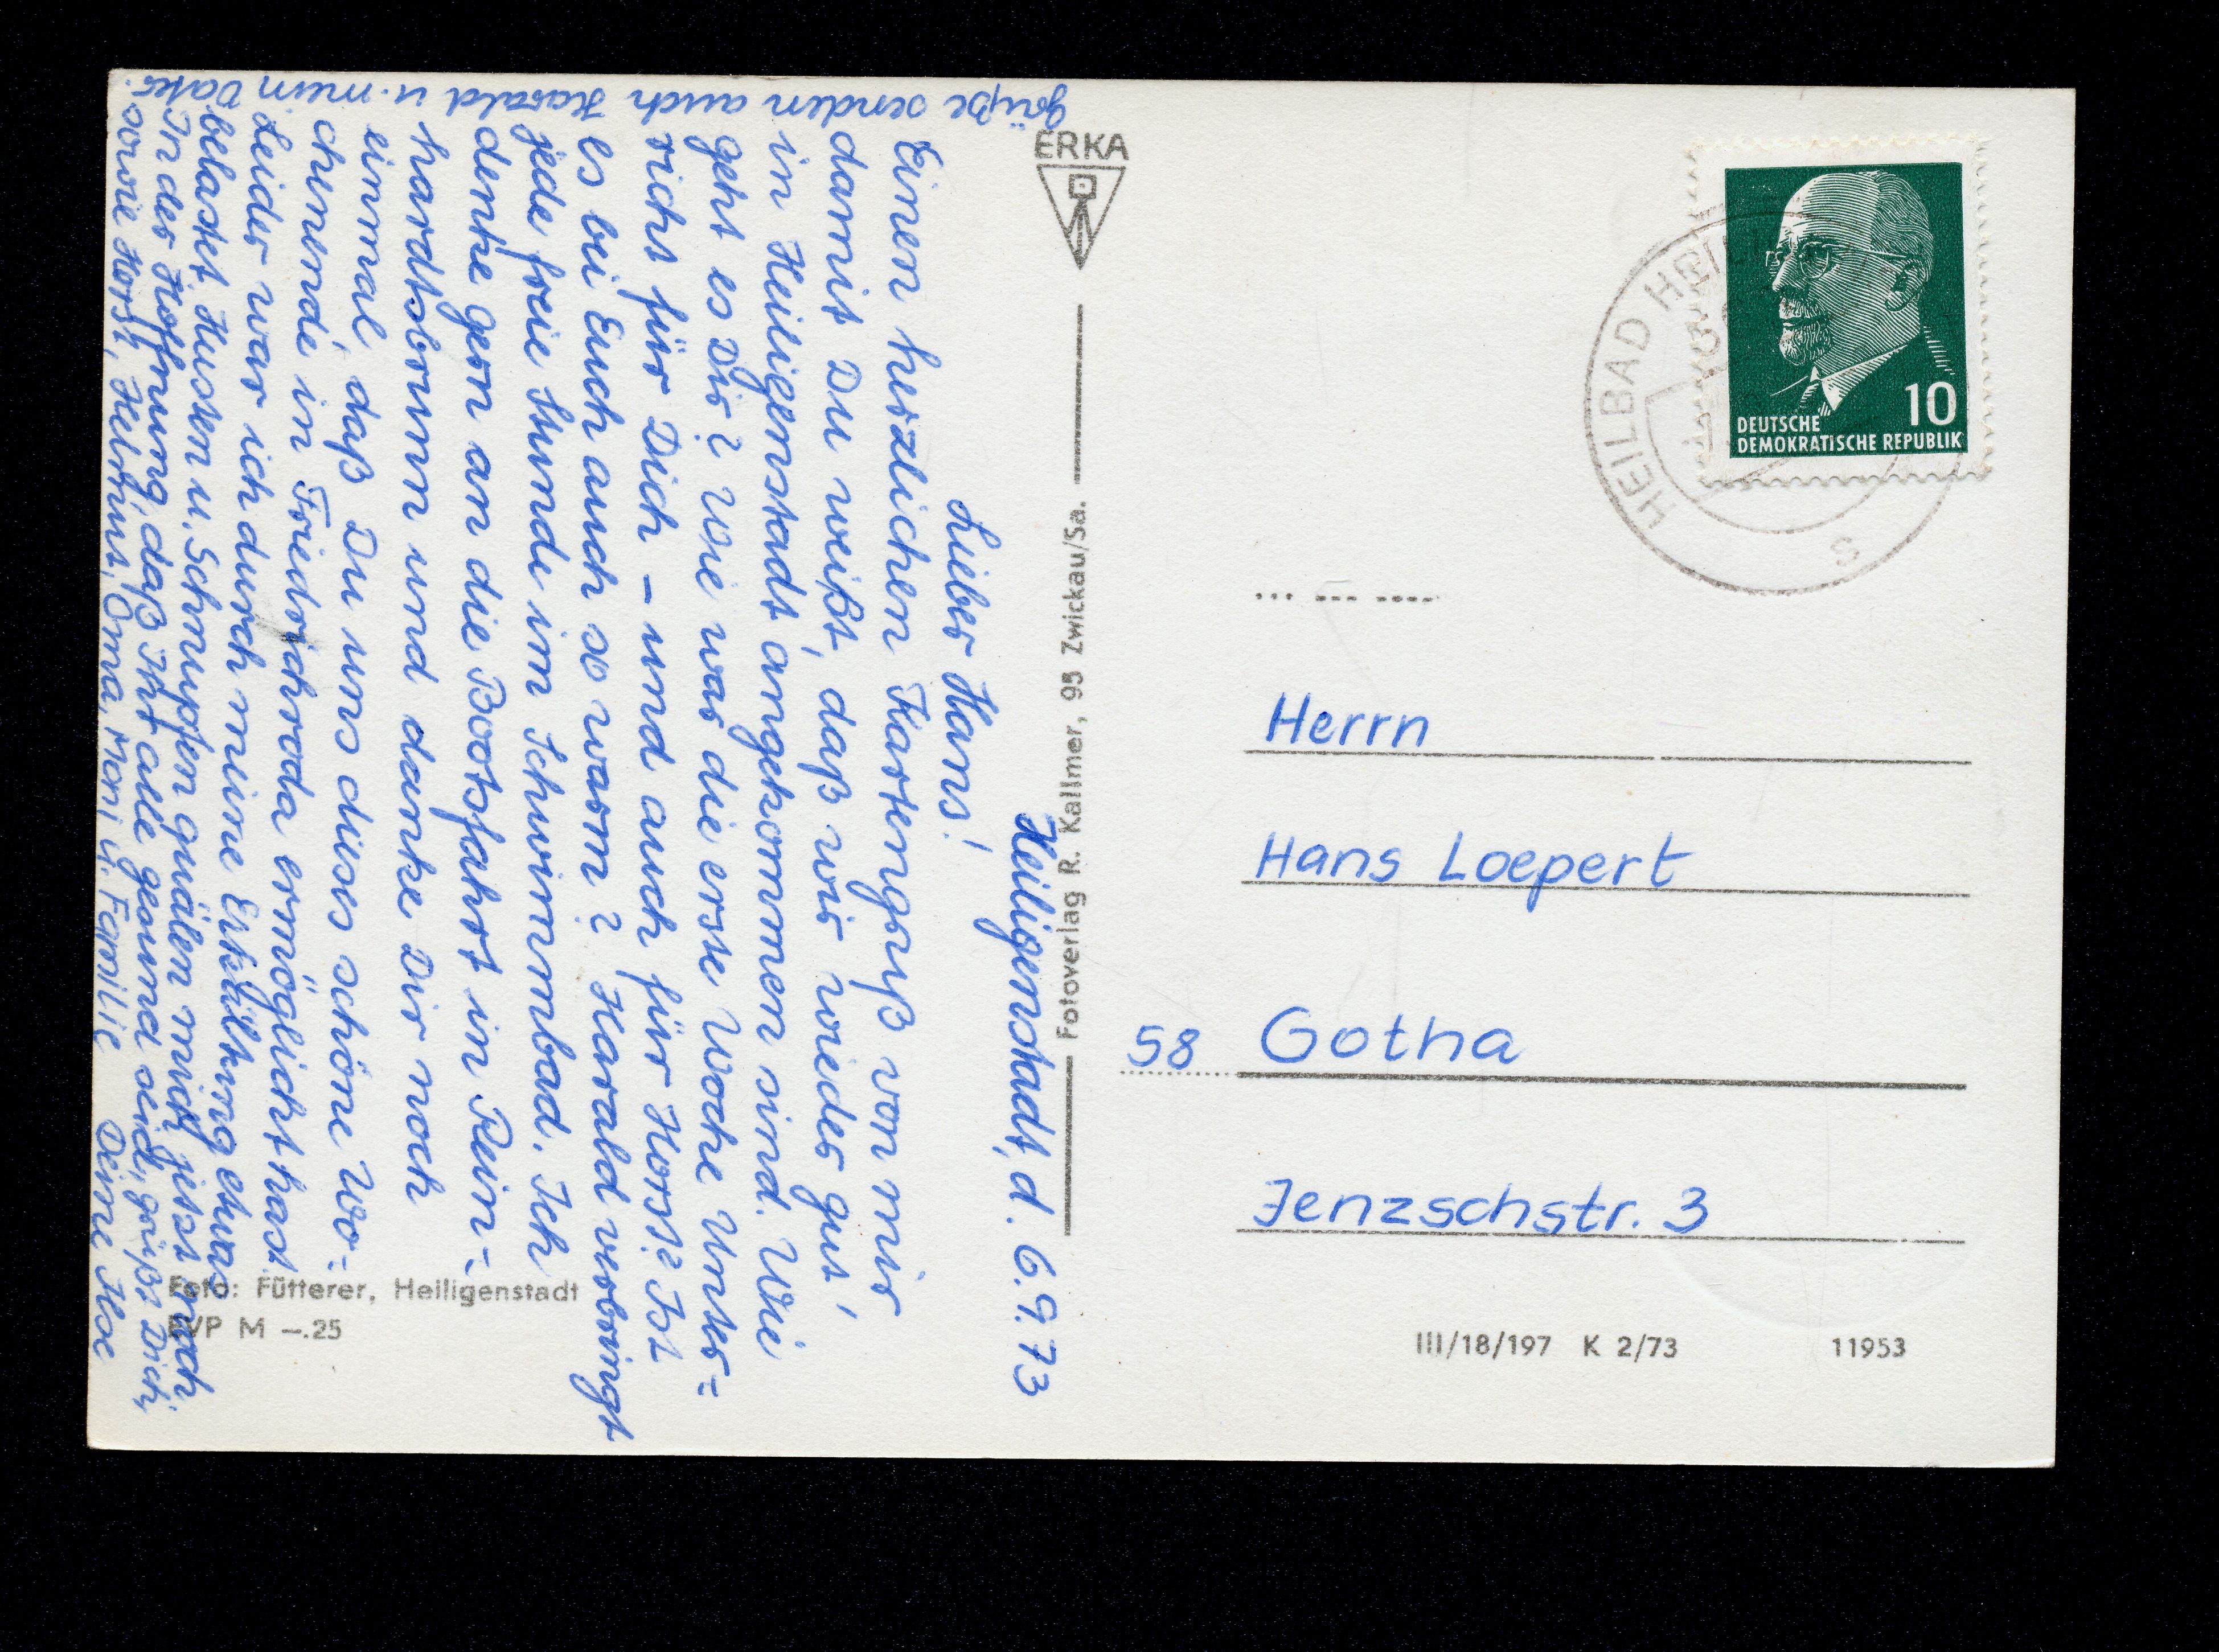 Heiligenstadt, d. 6.9.73
Lieber Hans!
Einen herzlichen Kartengruß von mir
damit Du weißt, daß wir wieder gut
in Heiligenstadt angekommen sind. Wie
geht es Dir? Wie war die erste Woche Unter=
richt für Dich – und auch für Horst? Ist
es bei Euch auch so warm? Harald verbringt
jede freie Stunde im Schwimmbad. Ich
denke gern an die Bootsfahrt in Rein=
hardtsbrunn und danke Dir noch
einmal, daß Du uns dieses schöne Wo=
chenende in Friedrichroda ermöglicht hast.
Leider war ich durch meine Erkältung etwas
belastet. Husten u. Schnupfen quälen mich jetzt noch.
In der Hoffnung, daß Ihr alle gesund seid, grüßt Dich,
sowie Horst, Helmut, Oma, Moni u. Familie Deine Ilse
Grüße senden auch Harald u. mein Vater.
ERKA
Fotoverlag R. Kallmer, 95 Zwickau/Sa.
Foto: Fütterer, Heiligenstadt
EVP M –.25
HEILBAD HEILI
S
10
DEUTSCHE
DEMOKRATISCHE REPUBLIK
Herrn
Hans Loepert
58 Gotha
Jenzschstr. 3
III/18/197 K 2/73 11953